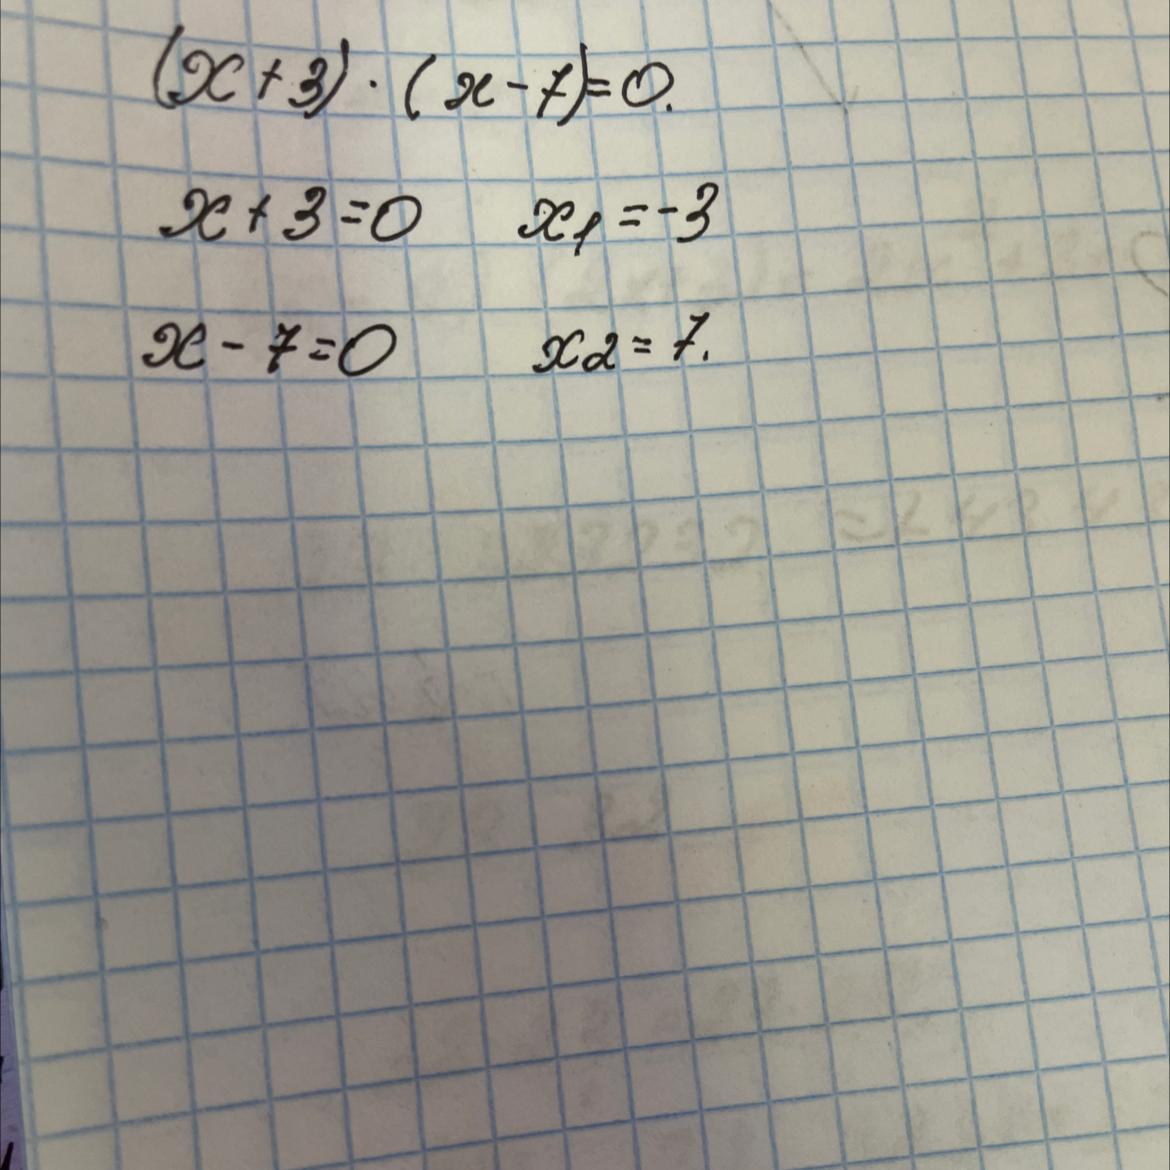 (x + 3) · (x - 7) = 0.
x + 3 = 0 x1 = -3
x - 7 = 0 x2 = 7.